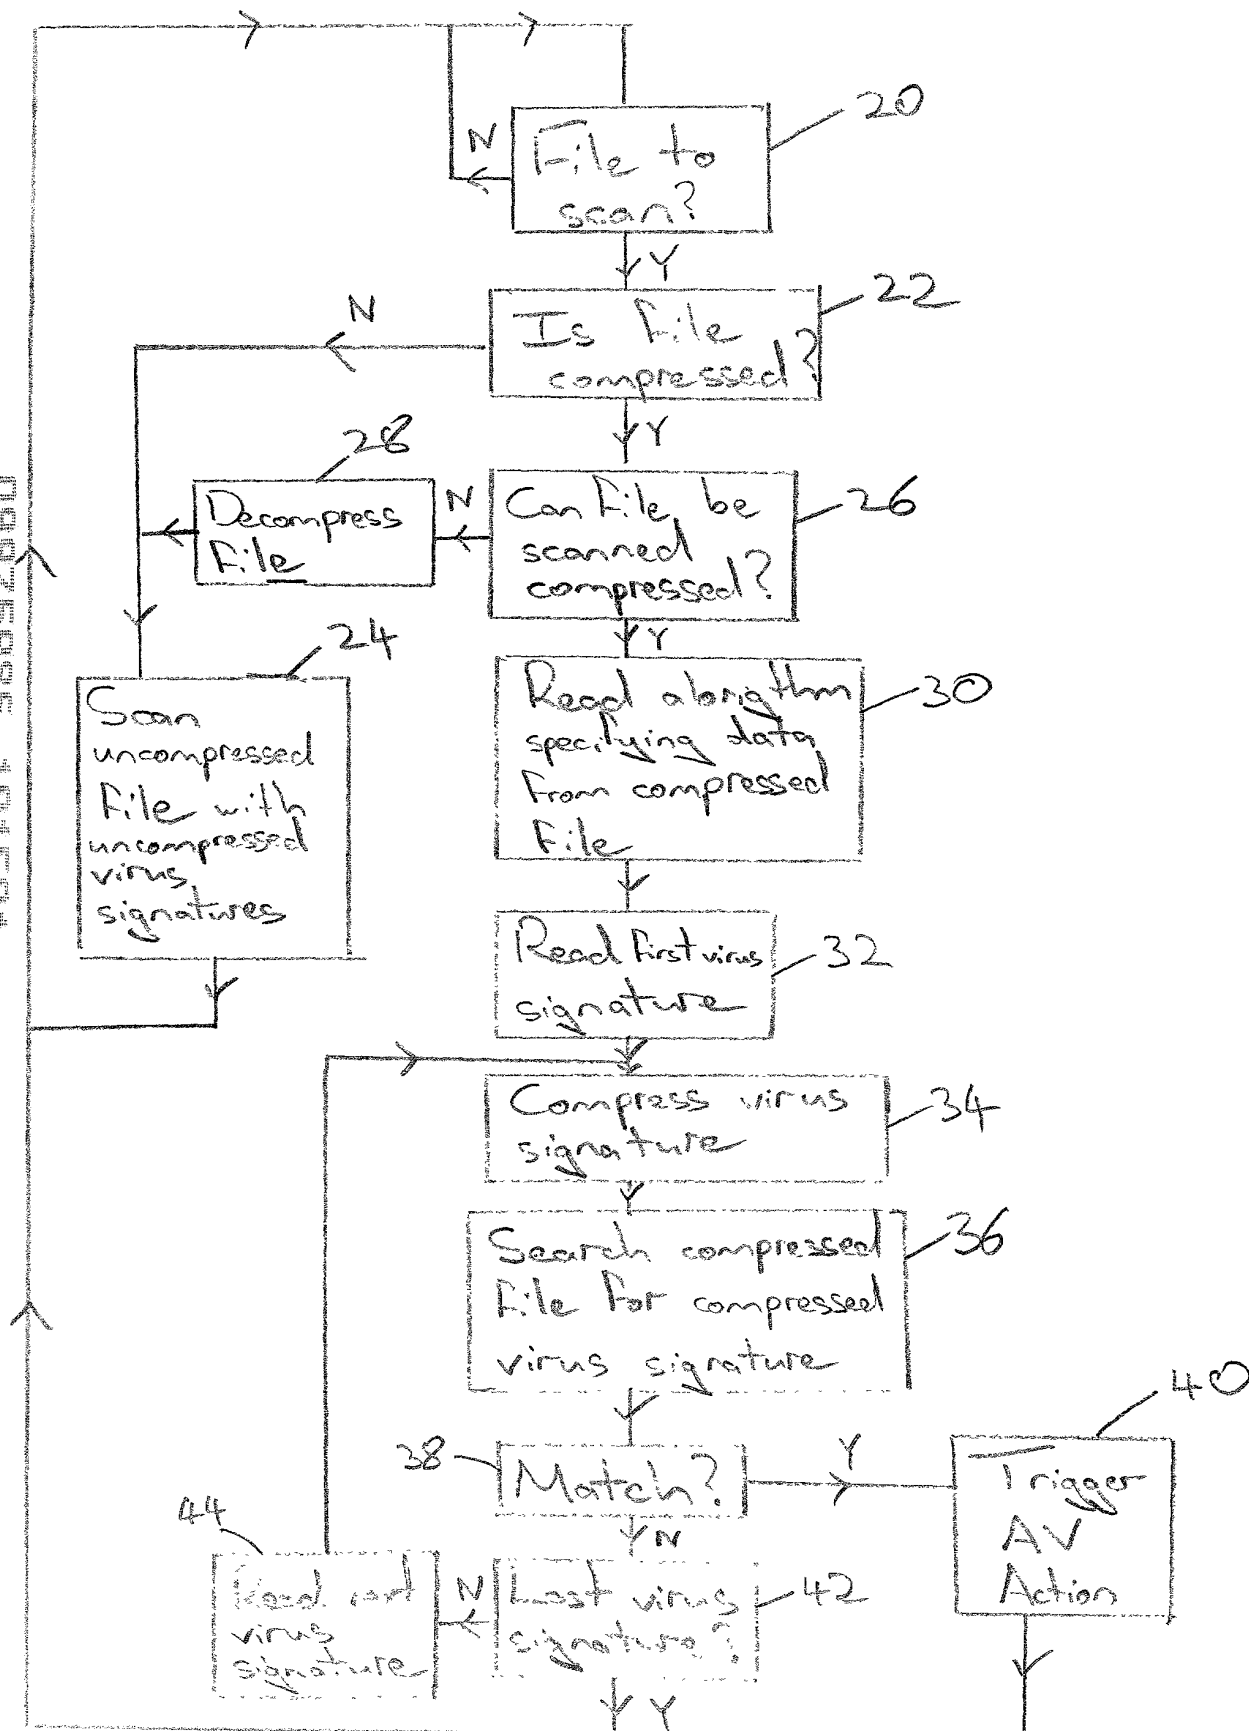 20
N
File to
scan?
Y
22
N
Is File
compressed?
Y
28
Decompress
File
N
Can File be
scanned
compressed?
26
Y
24
Scan
uncompressed
File with
uncompressed
virus
signatures
Read alorigthm
specifying data
From compressed
File
30
Read First virus
signature
32
Compress virus
signature
34
Search compressed
File For compressed
virus signature
36
38
Match?
Y
40
Trigger
AV
Action
N
44
Read
virus
signature
N
Last virus
signature?
42
Y